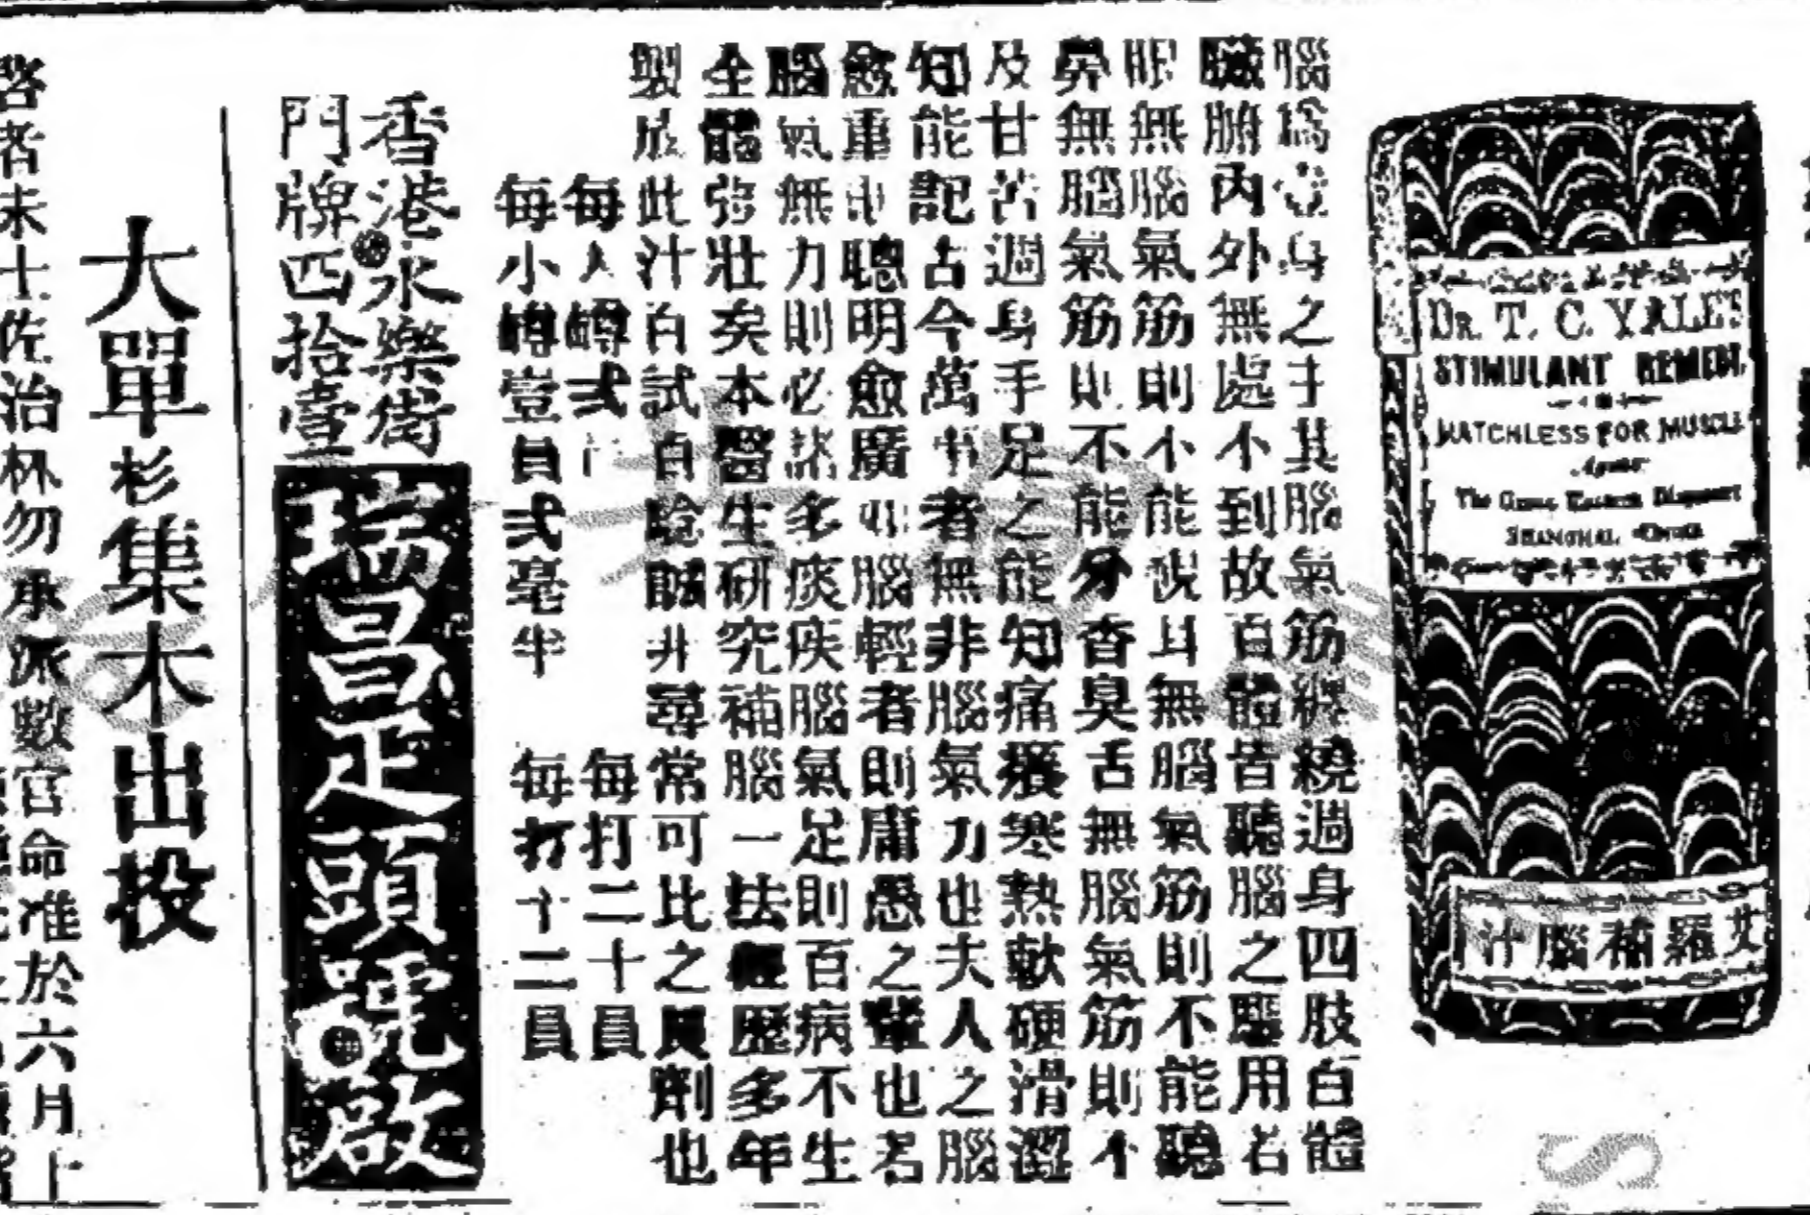 DR. T. C. YALE'S
STIMULANT REMEDY.
MATCHLESS FOR MUSCLE
SHANGHAI, CHINA
艾羅補腦汁
腦為壹身之主其腦氣筋纏繞過身四肢百體
臟腑內外無處不到故百體皆聽腦之驅用若
眼無腦氣筋則不能視耳無腦氣筋則不能聽
鼻無腦氣筋則不能分香臭舌無腦氣筋則不
及甘苦週身手足之能知痛癢寒熱軟硬滑澀
知能記古今萬事者無非腦氣力也夫人之腦
愈重則聰明愈廣則腦輕者則庸愚之輩也若
腦氣無力則必諸多痰疾腦氣足則百病不生
全體强壯矣本醫生研究補腦一法經歷多年
製成此汁百試百驗誠非尋常可比之良劑也
每大罇弍 每打二十員
每小罇壹員弍毫半 每打十二員
香港永樂街
門牌四拾壹
瑞昌疋頭號啟
大單杉集木出投
啓者未士佐治林勿承派數官命准於六月上